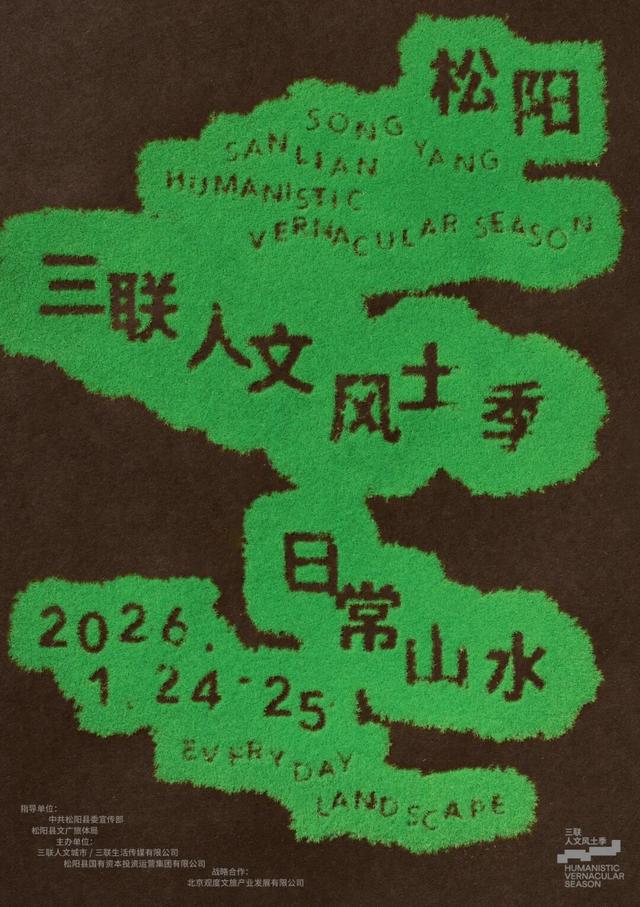 松阳
SONG YANG
SANLIAN
HUMANISTIC
VERNACULAR SEASON
三联人文风土季
日常山水
2026.
1.24-25
EVERYDAY
LANDSCAPE
指导单位：
中共松阳县委宣传部
松阳县文广旅体局
主办单位：
三联人文城市 / 三联生活传媒有限公司
松阳县国有资本投资运营集团有限公司
战略合作：
北京观度文旅产业发展有限公司
三联
人文风土季
HUMANISTIC
VERNACULAR
SEASON